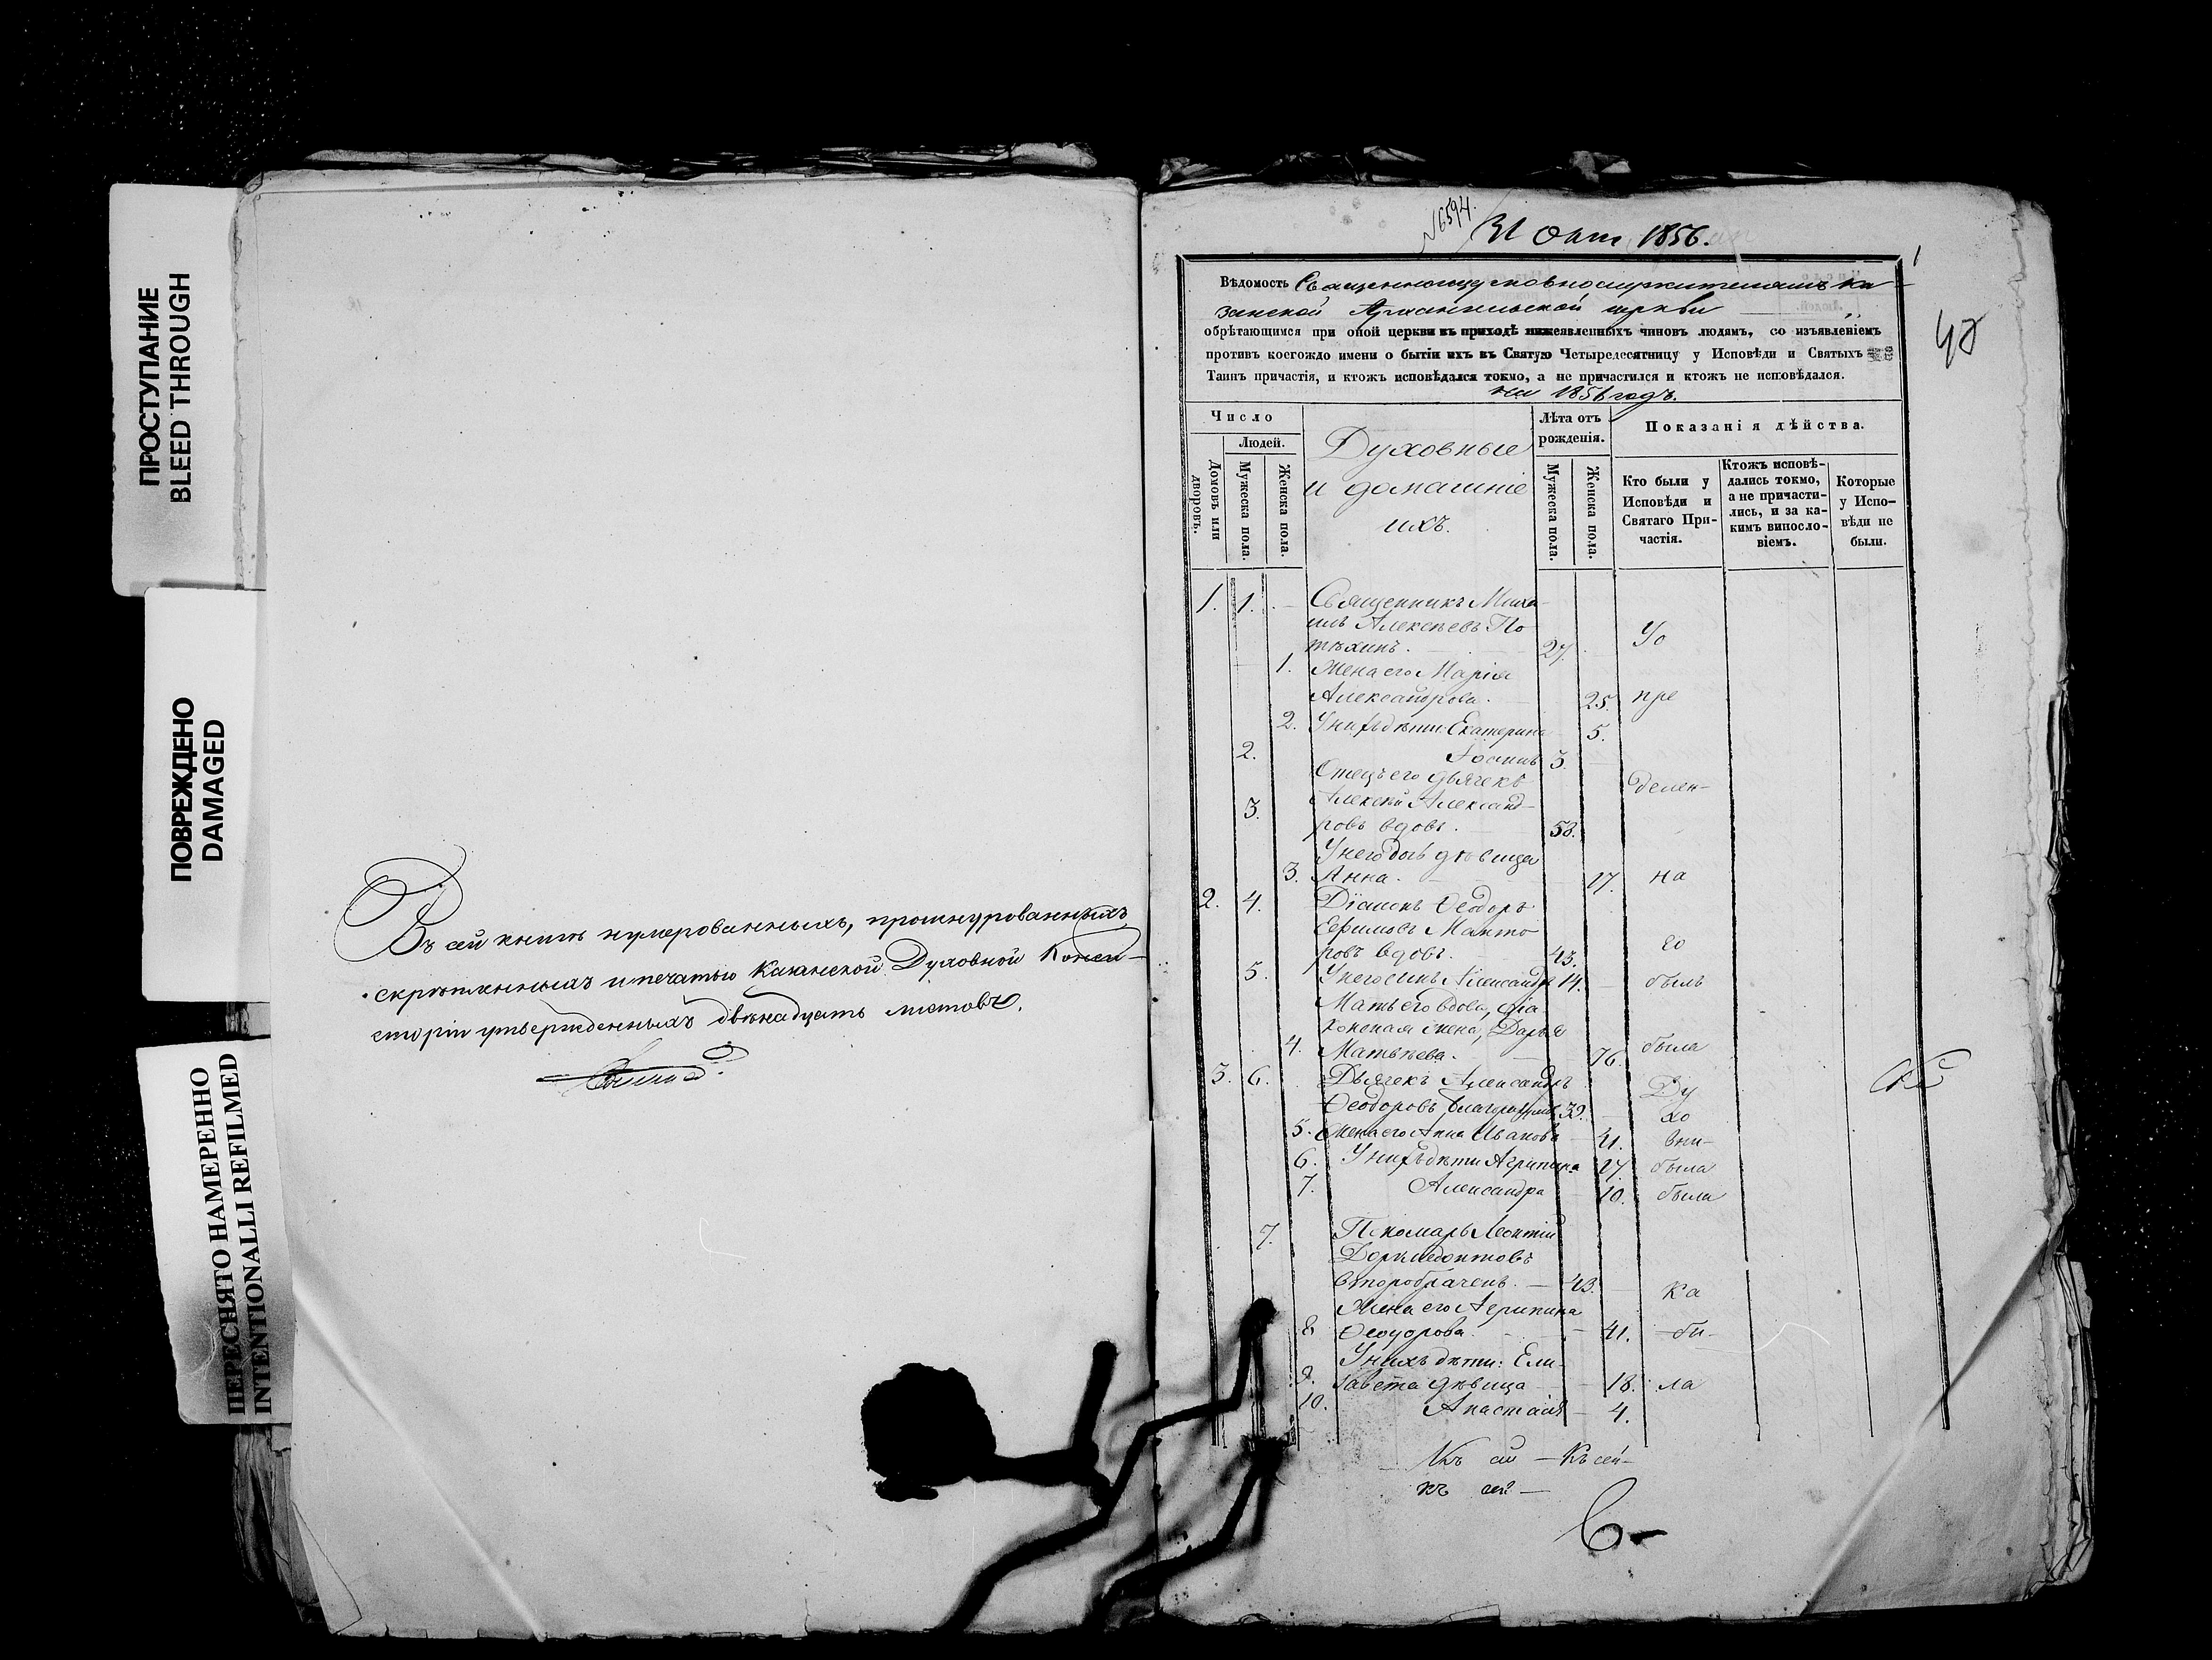 ПРОСТУПАНИЕ
BLEED THROUGH
ПОВРЕЖДЕНО
DAMAGED
ПЕРЕСНЯТО НАМЕРЕННО
INTENTIONALLI REFILMED
Въ сей книгѣ нумерованныхъ, прошнурованныхъ
скрѣпленныхъ и печатью Казанской Духовной Конси-
сторіи утвержденныхъ двѣнадцать листовъ.
№6594.
31 Окт 1856.
1
Вѣдомость Священноцерковнослужителямъ Ка-
занской Архангельской церкви
обрѣтающимся при оной церкви въ приходѣ нижеявленныхъ чиновъ людямъ, со изъявленіемъ
противъ коегождо имени о бытіи ихъ въ Святую Четыредесятницу у Исповѣди и Святыхъ
Таинъ причастія, и ктожъ исповѣдался токмо, а не причастился и ктожъ не исповѣдался.
на 1856 годъ.
Число
Людей.
Домовъ или дворовъ.
Мужеска пола.
Женска пола.
Духовные
и домашніе
ихъ.
Лѣта отъ
рожденія.
Мужеска пола.
Женска пола.
Показанія дѣйства.
Кто были у
Исповѣди и
Святаго При-
частія.
Ктожъ исповѣ-
дались токмо,
а не причасти-
лись, и за ка-
кимъ виносло-
віемъ.
Которые
у Испо-
вѣди не
были.
1. 1. Священникъ Миха-
илъ Алексѣевъ По
тѣхинъ. 27. Уо
1. Жена его Марія
Александрова. 25. пре
2. У нихъ дѣти: Екатерина 5.
2. Іоаннъ 3.
Отецъ его дьячекъ делен-
3. Алексѣй Александ-
ровъ вдовъ. 53.
У него дочь дѣвица
3. Анна. 17. на
2. 4. Діаконъ Ѳеодоръ
Ефимовъ
ровъ вдовъ. 43. го
5. У него сынъ Александръ 14. былъ
Мать его вдова, діа
конская жена, Дарья
4. Матвѣева. 76. была
3. 6. Дьячекъ Александръ Ду
Ѳеодоровъ 39. хо
5. Жена его Анна Иванова 41. вни-
6. У нихъ дѣти Агрипина 17. была
7. Александра 10. была
7. Пономарь Леонтій
Доримедонтовъ
второбраченъ. 43. Ка
Жена его Агрипина
8 Ѳеодорова. 41. би-
У нихъ дѣти: Ели-
9. завета дѣвица 18. ла
10. Анастасія 4.
Къ сей — Къ сей-
къ сей —